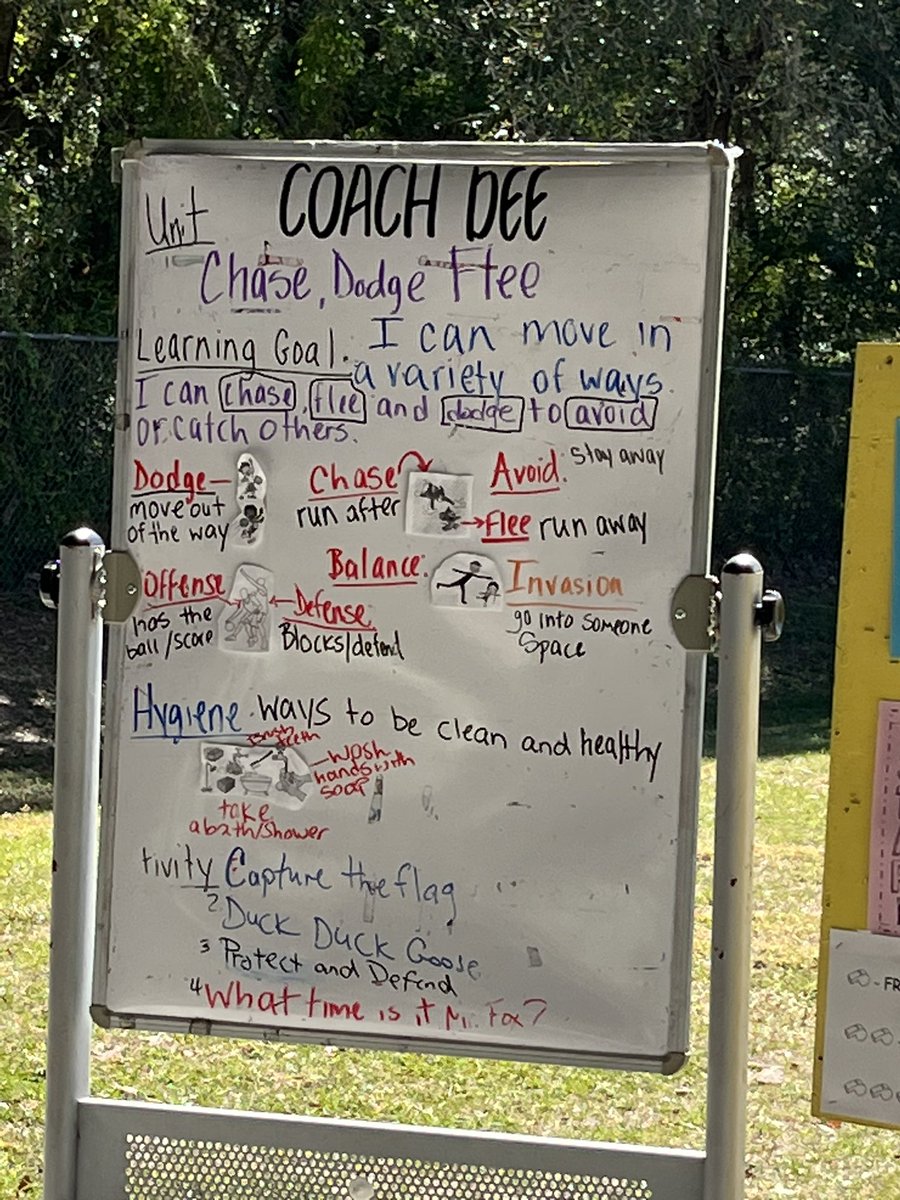 COACH DEE
Unit
Chase, Dodge Flee
Learning Goal. I can move in
a variety of ways.
I can chase, flee and dodge to avoid
or catch others.
Dodge-
move out
of the way
Chase
run after
Avoid: stay away
Flee run away
Offense
has the
ball/score
Defense
Blocks/defend
Balance:
Invasion
go into someone
space
Hygiene. ways to be clean and healthy
Brush teeth
wash
hands with
soap
take
a bath/shower
tivity Capture the flag
2 Duck Duck Goose
3 Protect and Defend
4 What time is it Mr. Fox?
-FR